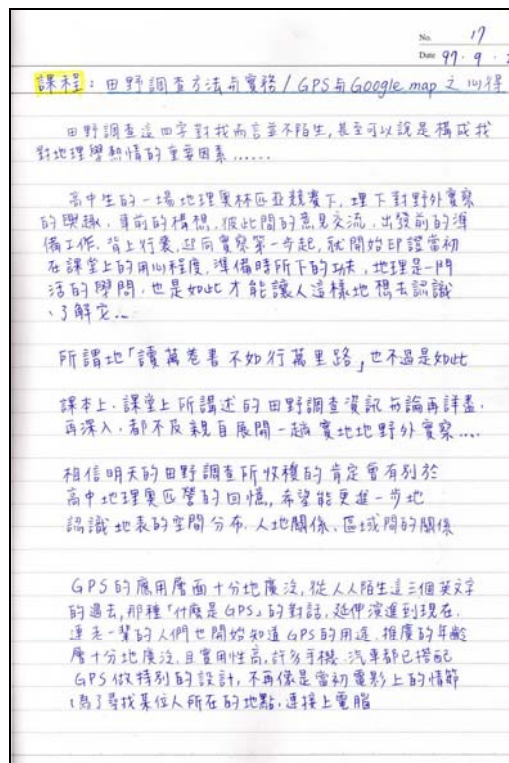 No. 17
Date 97.9.
課程：田野調查方法與實務/GPS與Google map 之心得
田野調查這四字對我而言並不陌生,甚至可以說是構成我
對地理學熱情的重要因素……
高中生的一場地理奧林匹亞競賽下,埋下對野外實察
的興趣,事前的構想,彼此間的意見交流,出發前的準
備工作,背上行囊,邁向實察第一步起,就開始印證當初
在課堂上的用心程度,準備時所下的功夫,地理是一門
活的學問,也是如此才能讓人這樣地想去認識
、了解它…
所謂地「讀萬卷書不如行萬里路」,也不過是如此
課本上、課堂上所講述的田野調查資訊無論再詳盡,
再深入,都不及親自展開一趟實地地野外實察….
相信明天的田野調查所收穫的肯定會有別於
高中地理奧匹營的回憶,希望能更進一步地
認識地表的空間分布、人地關係、區域間的關係
GPS的應用層面十分地廣泛,從人人陌生這三個英文字
的過去,那種「什麼是GPS」的對話,延伸演進到現在,
連老一輩的人們也開始知道GPS的用途,推廣的年齡
層十分地廣泛,且實用性高,許多手機、汽車都已搭配
GPS做特別的設計,不再像是當初電影上的情節
、為了尋找某位人所在的地點,連接上電腦